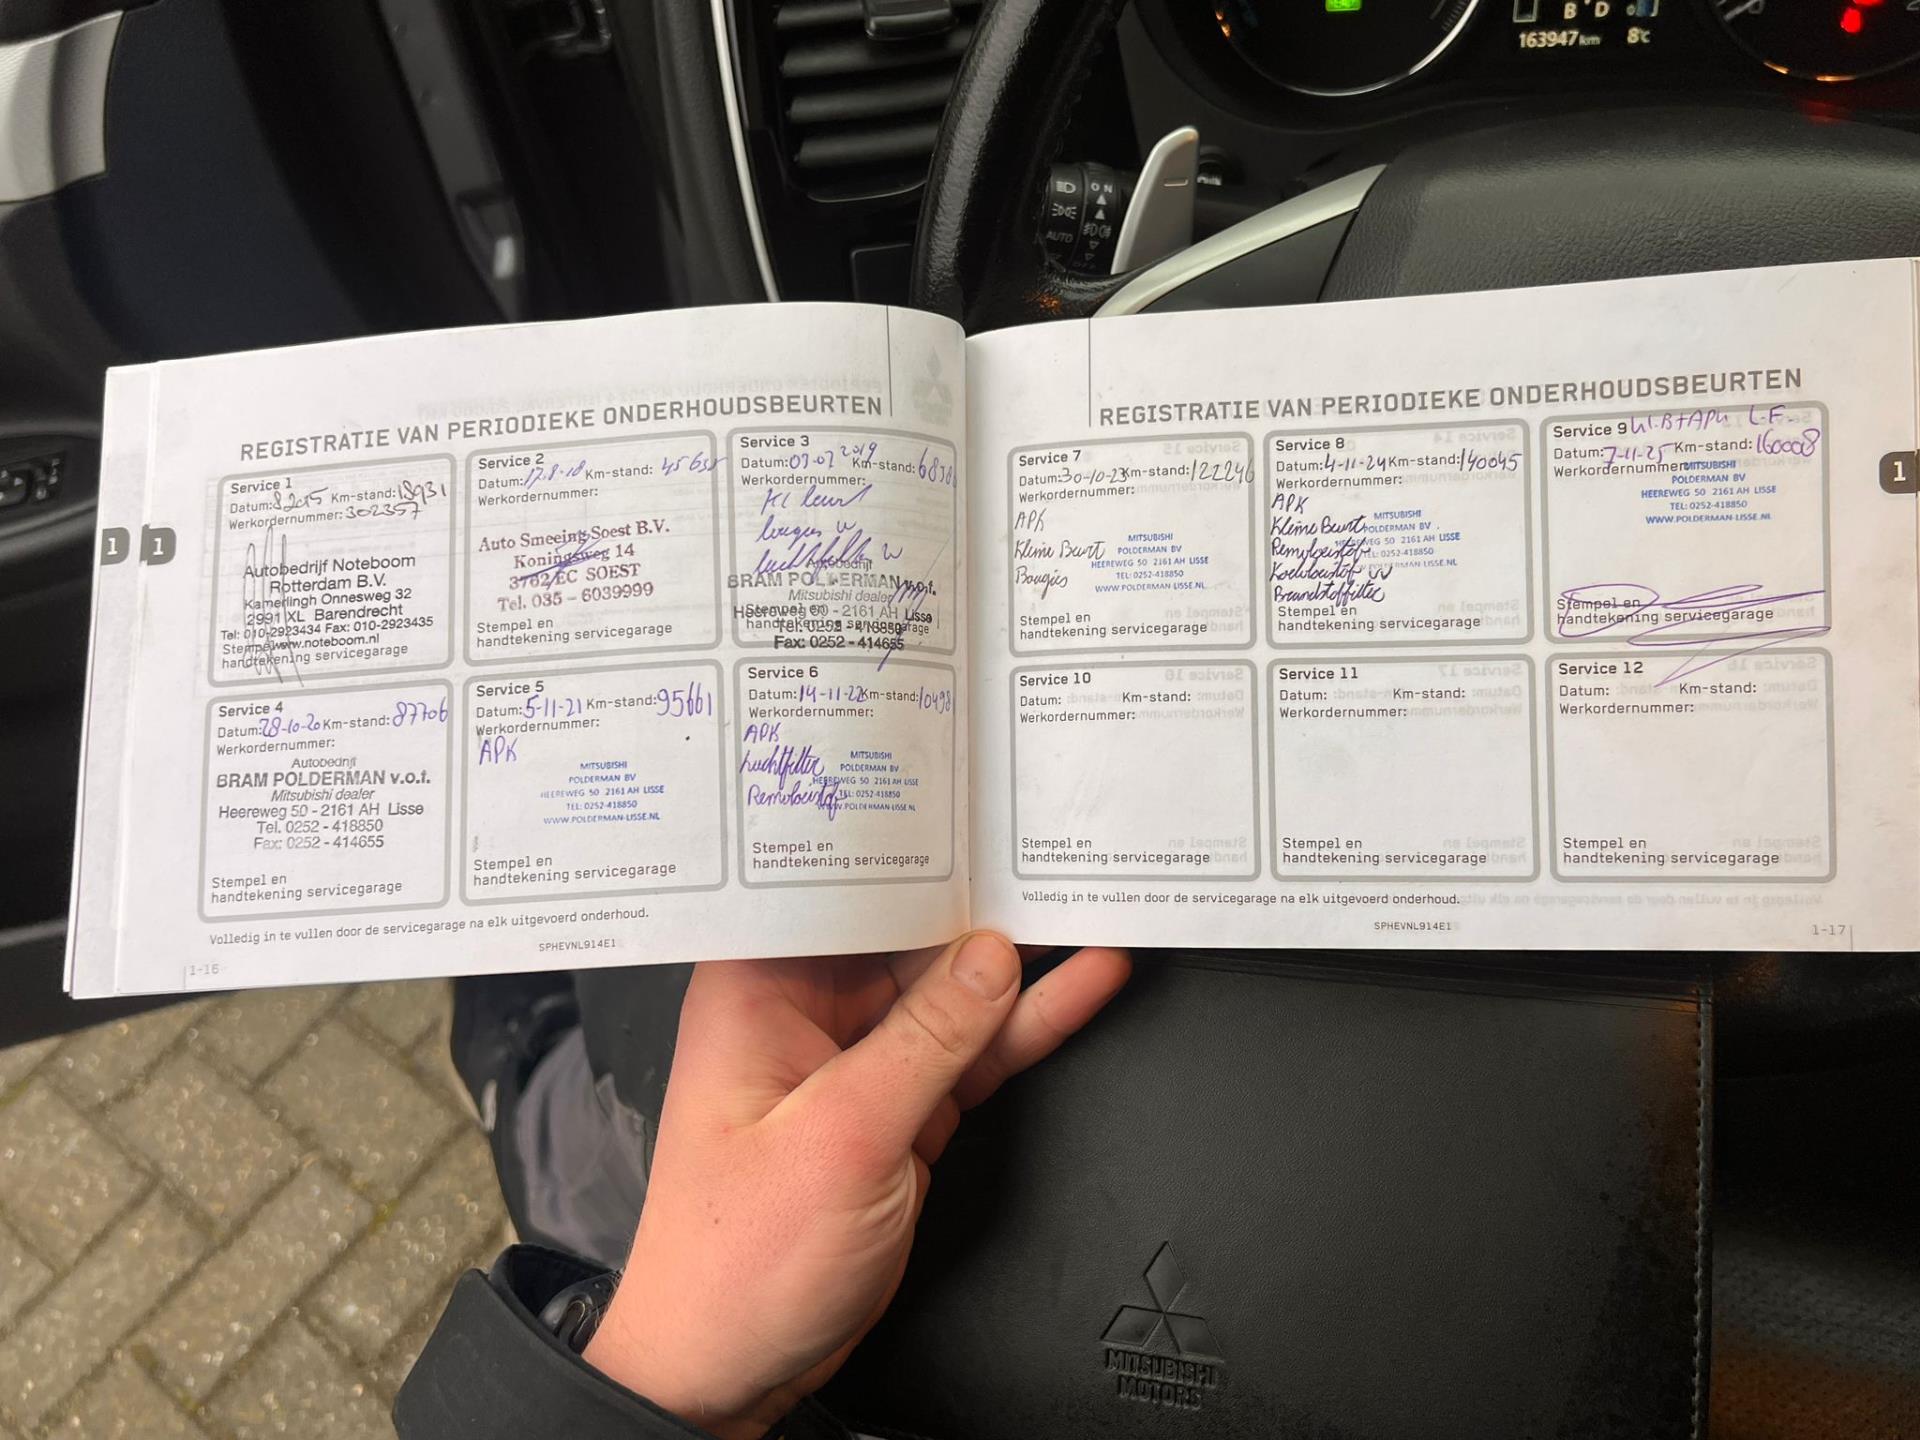 163947 km 8°C
B D
ON
AUTO
REGISTRATIE VAN PERIODIEKE ONDERHOUDSBEURTEN
1
1
Service 1
Datum: Km-stand: 18931
Werkordernummer: 302357
Autobedrijf Noteboom
Rotterdam B.V.
Kamerlingh Onnesweg 32
2991 XL Barendrecht
Tel: 010-2923434 Fax: 010-2923435
www.noteboom.nl
Stempel en
handtekening servicegarage
Service 2
Datum: 17-8-18 Km-stand:
Werkordernummer:
Auto Smeeing Soest B.V.
Koningsweg 14
3762 EC SOEST
Tel. 035 - 6039999
Stempel en
handtekening servicegarage
Service 3
Datum: 2019 Km-stand:
Werkordernummer:
Autobedrijf
BRAM POLDERMAN v.o.f.
Mitsubishi dealer
Heereweg 50 - 2161 AH Lisse
Tel. 0252 - 418850
Fax: 0252 - 414655
Stempel en
handtekening servicegarage
Service 4
Datum: 28-10-20 Km-stand: 87706
Werkordernummer:
Autobedrijf
BRAM POLDERMAN v.o.f.
Mitsubishi dealer
Heereweg 50 - 2161 AH Lisse
Tel. 0252 - 418850
Fax: 0252 - 414655
Stempel en
handtekening servicegarage
Service 5
Datum: 5-11-21 Km-stand: 95661
Werkordernummer:
APK
MITSUBISHI
POLDERMAN BV
HEEREWEG 50 2161 AH LISSE
TEL: 0252-418850
WWW.POLDERMAN-LISSE.NL
Stempel en
handtekening servicegarage
Service 6
Datum: 14-11-22 Km-stand:
Werkordernummer:
APK
Luchtfilter
Remvloeistof
MITSUBISHI
POLDERMAN BV
HEEREWEG 50 2161 AH LISSE
TEL: 0252-418850
WWW.POLDERMAN-LISSE.NL
Stempel en
handtekening servicegarage
Volledig in te vullen door de servicegarage na elk uitgevoerd onderhoud.
SPHEVNL914E1
1-16
REGISTRATIE VAN PERIODIEKE ONDERHOUDSBEURTEN
1
Service 7
Datum: 30-10-23 Km-stand: 122246
Werkordernummer:
APK
Kleine Beurt
Bougies
MITSUBISHI
POLDERMAN BV
HEEREWEG 50 2161 AH LISSE
TEL: 0252-418850
WWW.POLDERMAN-LISSE.NL
Stempel en
handtekening servicegarage
Service 8
Datum: 4-11-24 Km-stand: 140045
Werkordernummer:
APK
Kleine Beurt
Remvloeistof
Koelvloeistof VV
Brandstoffilter
MITSUBISHI
POLDERMAN BV
HEEREWEG 50 2161 AH LISSE
TEL: 0252-418850
WWW.POLDERMAN-LISSE.NL
Stempel en
handtekening servicegarage
Service 9
Datum: 7-11-25 Km-stand: 160008
Werkordernummer:
MITSUBISHI
POLDERMAN BV
HEEREWEG 50 2161 AH LISSE
TEL: 0252-418850
WWW.POLDERMAN-LISSE.NL
Stempel en
handtekening servicegarage
Service 10
Datum: Km-stand:
Werkordernummer:
Stempel en
handtekening servicegarage
Service 11
Datum: Km-stand:
Werkordernummer:
Stempel en
handtekening servicegarage
Service 12
Datum: Km-stand:
Werkordernummer:
Stempel en
handtekening servicegarage
Volledig in te vullen door de servicegarage na elk uitgevoerd onderhoud.
SPHEVNL914E1
1-17
MITSUBISHI
MOTORS